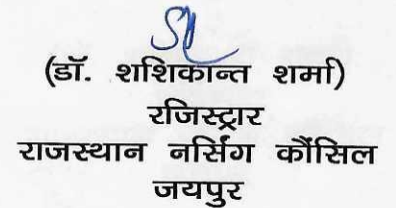 (डॉ. शशिकान्त शर्मा)
रजिस्ट्रार
राजस्थान नर्सिंग कौंसिल
जयपुर